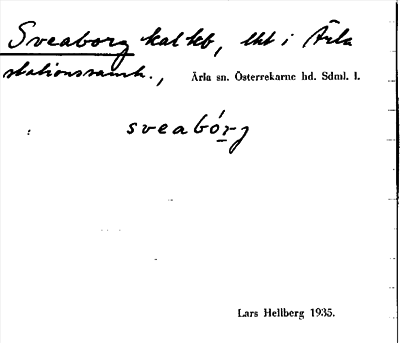 Sveaborg kal kb, lht i Ärla
stationssamh., Ärla sn. Österrekarne hd. Sdml. l.
: sveabórg
Lars Hellberg 1935.